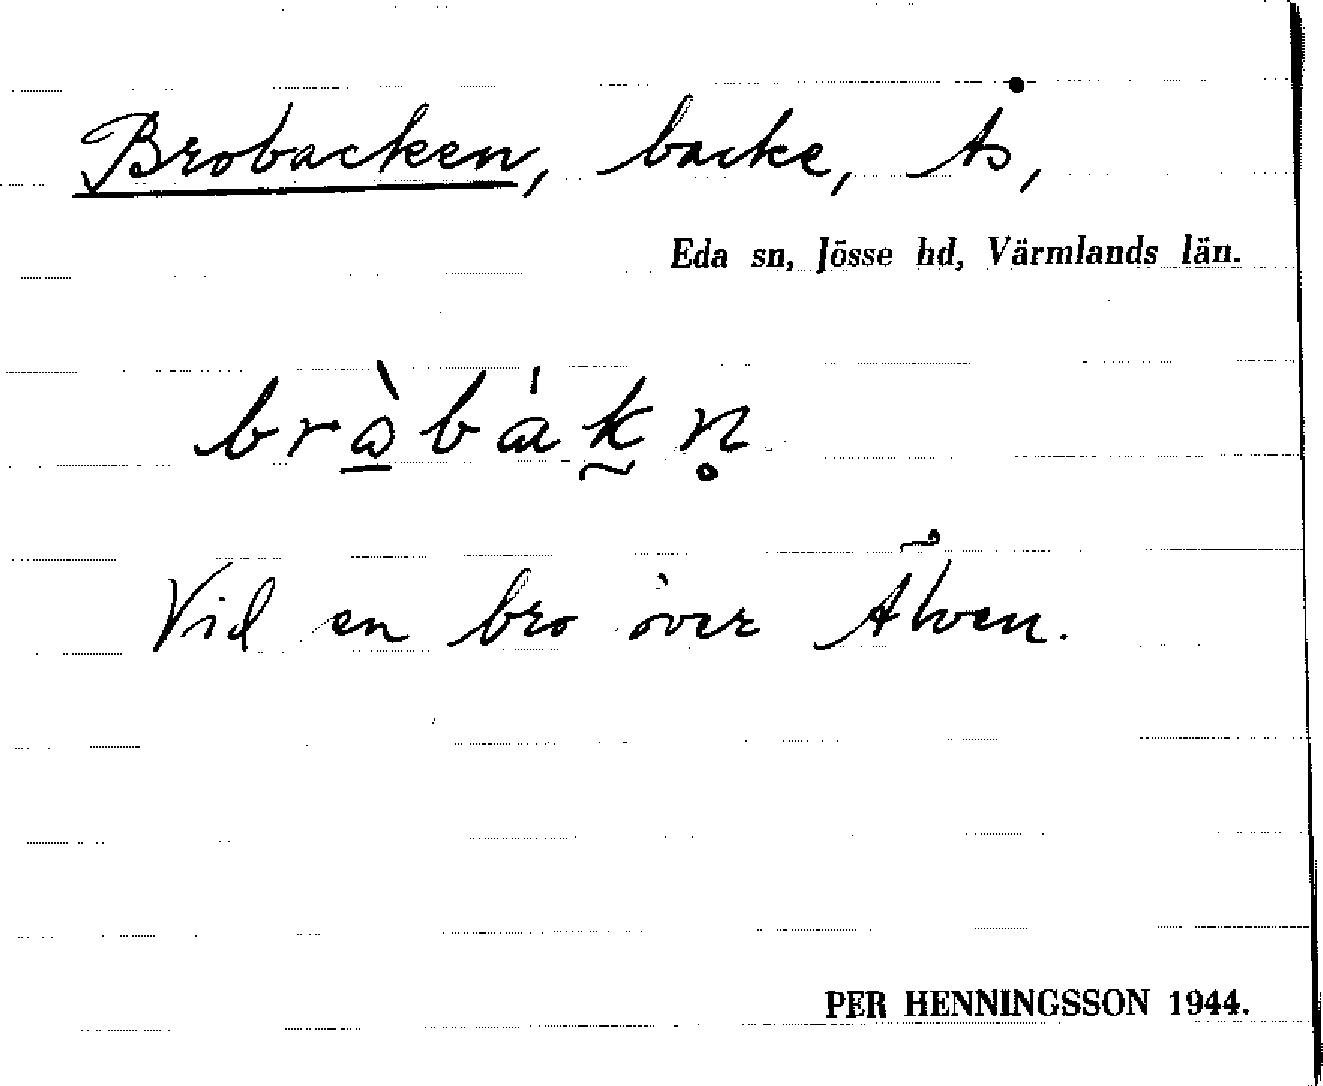 Brobacken, backe, Ås,
Eda sn, Jösse hd, Värmlands län.
brꞷ̲̀bák̰n̥
Vid en bro över Älven.
PER HENNINGSSON 1944.